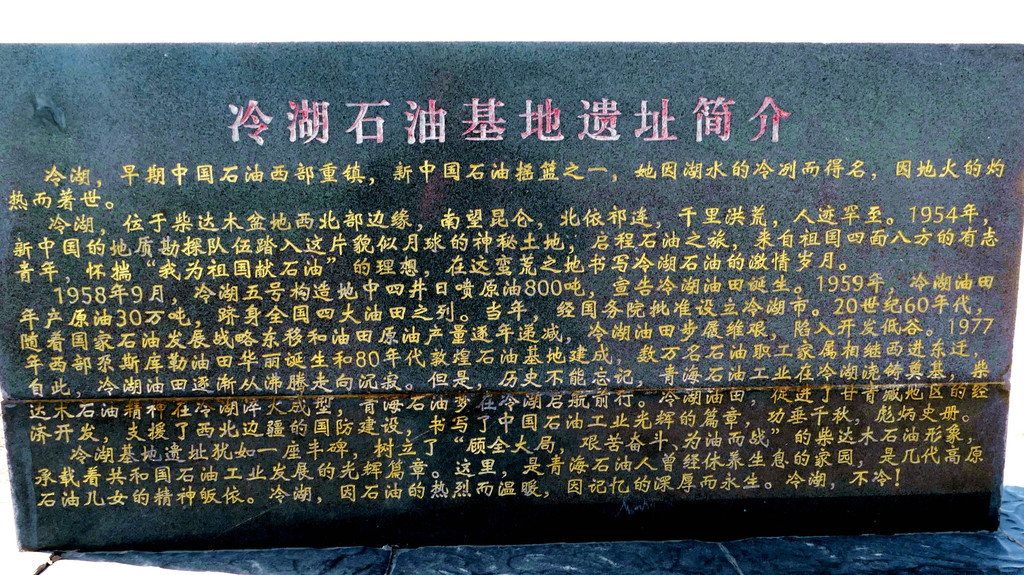 冷湖石油基地遗址简介
冷湖，早期中国石油西部重镇，新中国石油摇篮之一，她因湖水的冷冽而得名，因地火的灼
热而著世。
冷湖，位于柴达木盆地西北部边缘，南望昆仑，北依祁连，千里洪荒，人迹罕至。1954年，
新中国的地质勘探队伍踏入这片貌似月球的神秘土地，启程石油之旅，来自祖国四面八方的有志
青年，怀揣“我为祖国献石油”的理想，在这蛮荒之地书写冷湖石油的激情岁月。
1958年9月，冷湖五号构造地中四井日喷原油800吨，宣告冷湖油田诞生。1959年，冷湖油田
年产原油30万吨，跻身全国四大油田之列。当年，经国务院批准设立冷湖市。20世纪60年代，
随着国家石油发展战略东移和油田原油产量逐年递减，冷湖油田步履维艰，陷入开发低谷。1977
年西部尕斯库勒油田华丽诞生和80年代敦煌石油基地建成，数万名石油职工家属相继西进东迁，
自此，冷湖油田逐渐从沸腾走向沉寂。但是，历史不能忘记，青海石油工业在冷湖浇铸奠基，柴
达木石油精神在冷湖淬火成型，青海石油梦在冷湖启航前行。冷湖油田，促进了甘青藏地区的经
济开发，支援了西北边疆的国防建设，书写了中国石油工业光辉的篇章，功垂千秋，彪炳史册。
冷湖基地遗址犹如一座丰碑，树立了“顾全大局，艰苦奋斗，为油而战”的柴达木石油形象，
承载着共和国石油工业发展的光辉篇章。这里，是青海石油人曾经休养生息的家园，是几代高原
石油儿女的精神皈依。冷湖，因石油的热烈而温暖，因记忆的深厚而永生。冷湖，不冷！